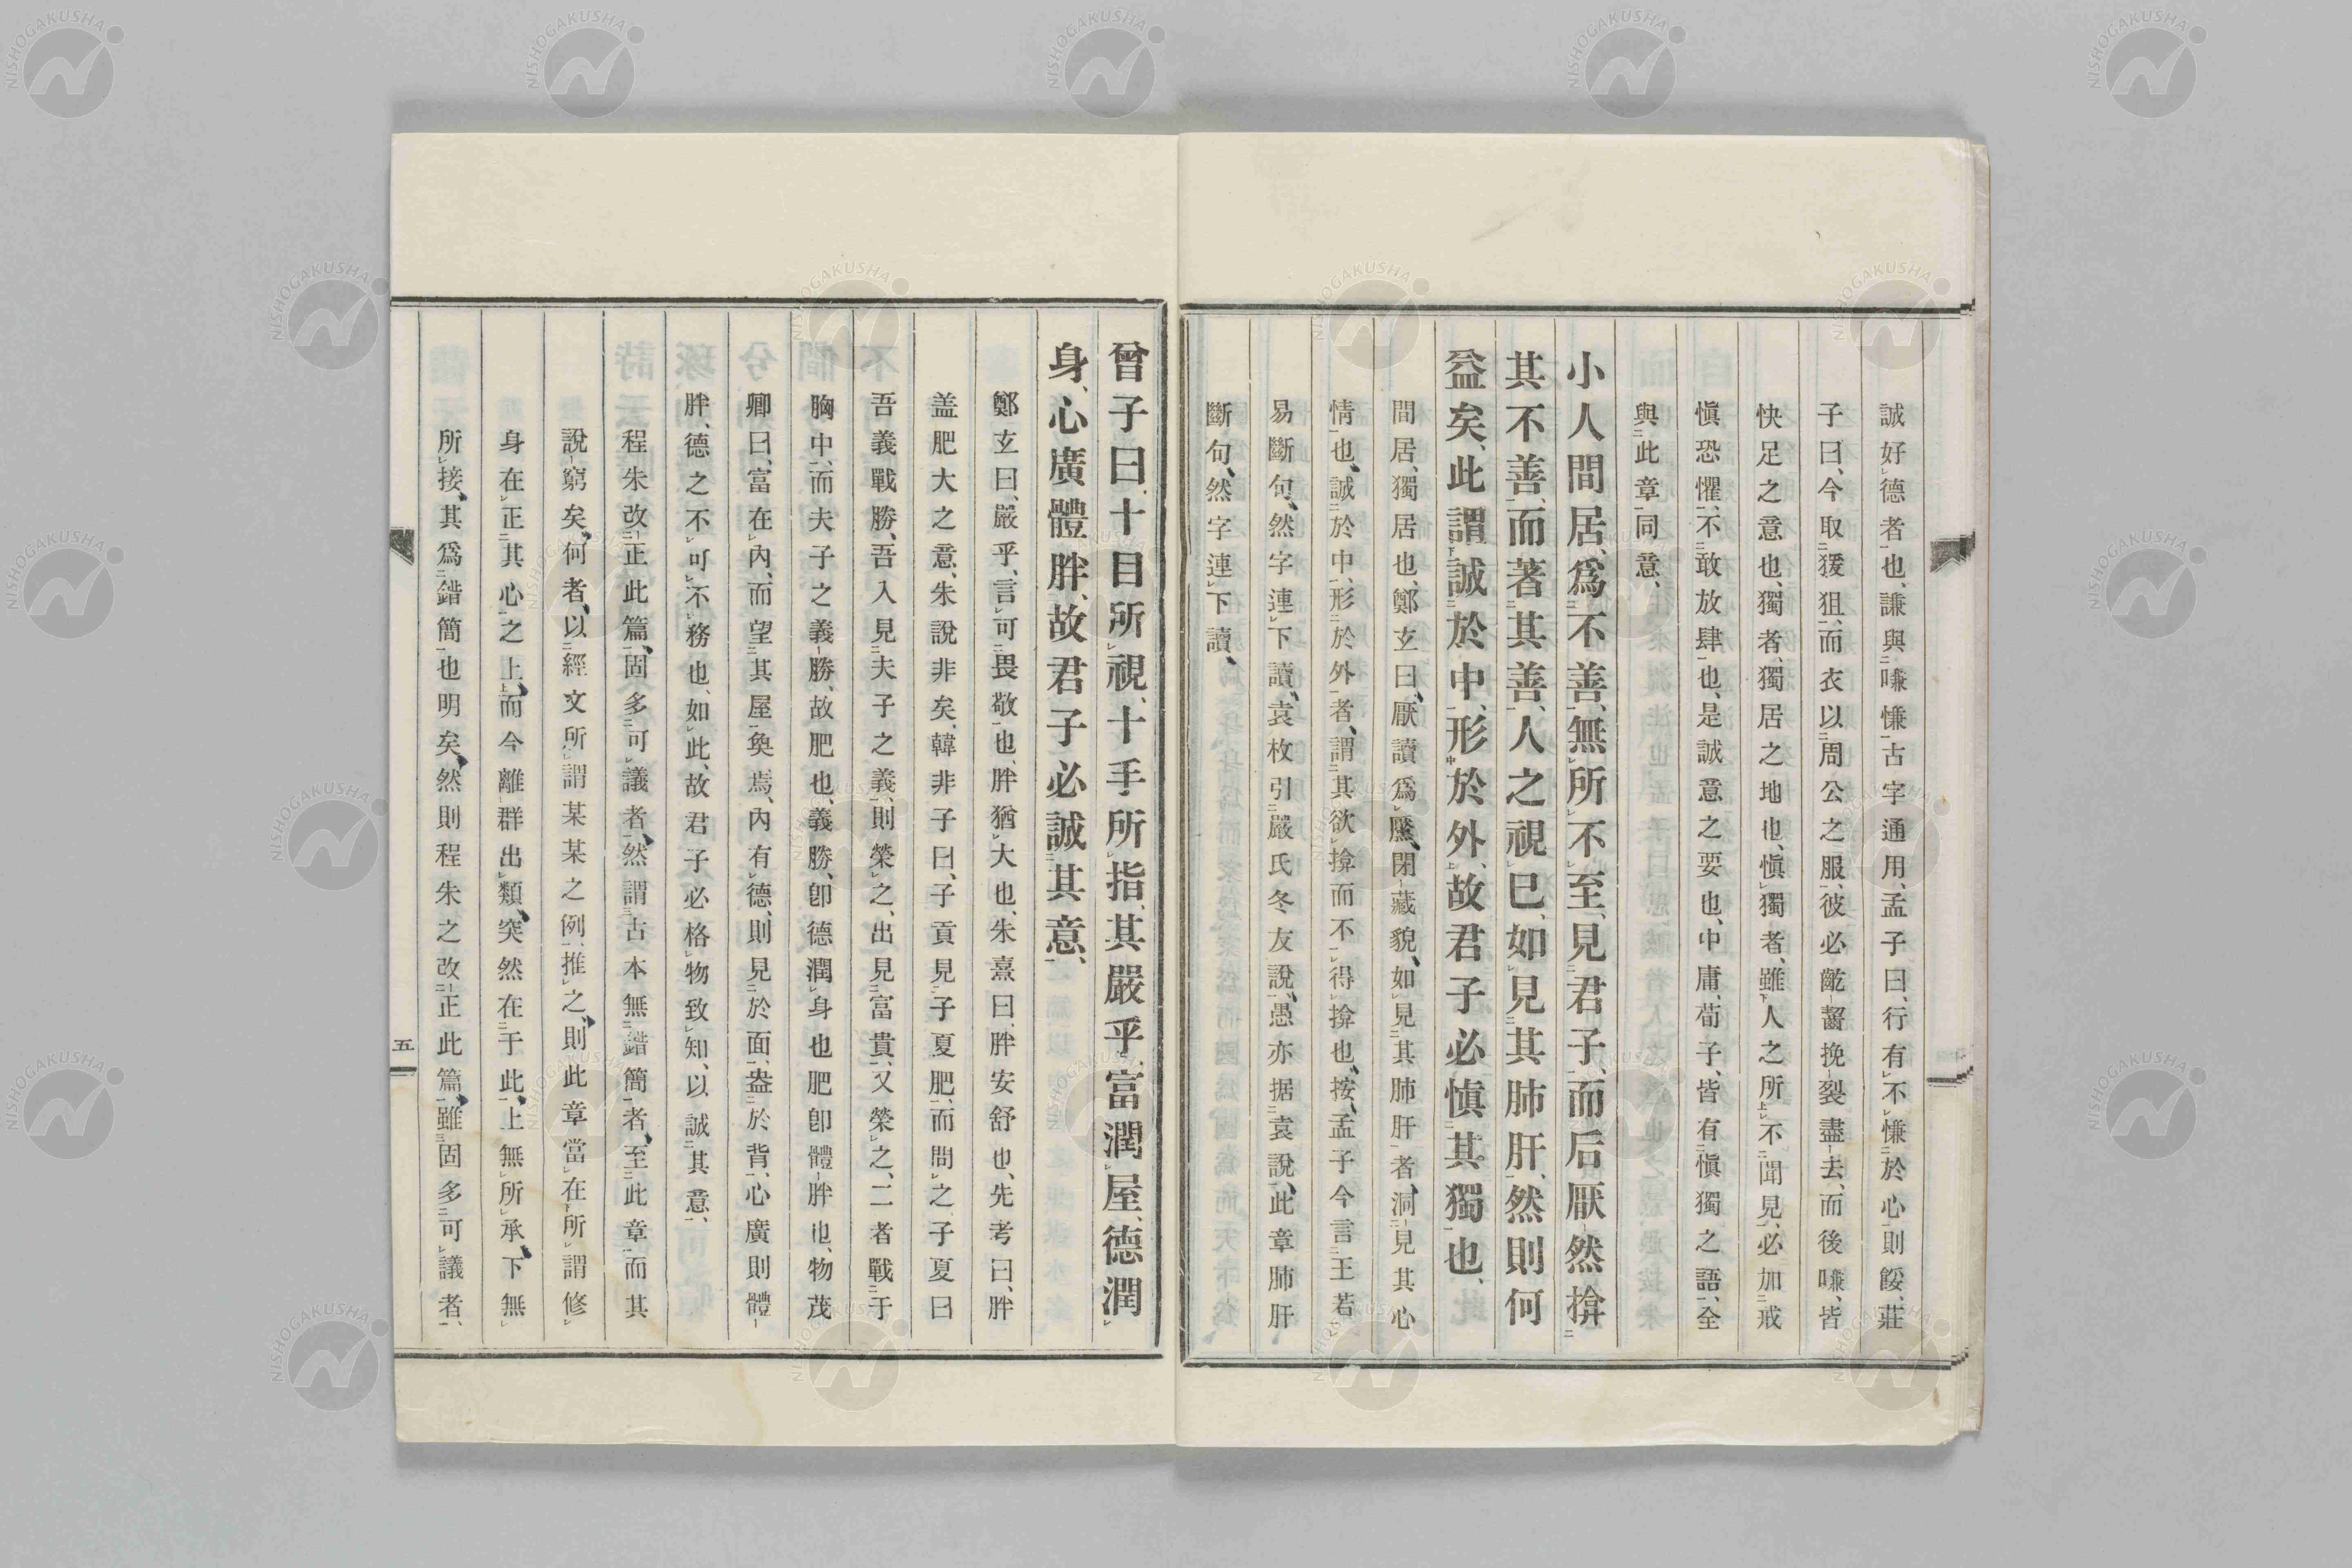 誠好德者也、謙與嗛慊古字通用、孟子曰、行有不慊於心則餒、莊
子曰、今取猨狙、而衣以周公之服、彼必齕齧挽裂盡去、而後嗛、皆
快足之意也、獨者、獨居之地也、愼獨者、雖人之所不聞見、必加戒
愼恐懼、不敢放肆也、是誠意之要也、中庸、荀子、皆有愼獨之語、全
與此章同意、
小人間居、爲不善、無所不至、見君子、而后厭然揜
其不善、而著其善、人之視己、如見其肺肝、然則何
益矣、此謂誠於中、形於外、故君子必愼其獨也、
間居、獨居也、鄭玄曰、厭讀爲黶、閉藏貌、如見其肺肝者、洞見其心
情也、誠於中、形於外者、謂其欲揜而不得揜也、按、孟子今言王若
易斷句、然字連下讀、袁枚引嚴氏冬友說、愚亦据袁說、此章肺肝
斷句、然字連下讀、
曾子曰、十目所視、十手所指、其嚴乎、富潤屋、德潤
身、心廣體胖、故君子必誠其意、
鄭玄曰、嚴乎、言可畏敬也、胖猶大也、朱熹曰、胖安舒也、先考曰、胖
盖肥大之意、朱說非矣、韓非子曰、子貢見子夏肥、而問之、子夏曰
吾義戰勝、吾入見夫子之義、則榮之、出見富貴、又榮之、二者戰于
胸中、而夫子之義勝、故肥也、義勝、卽德潤身也、肥卽體胖也、物茂
卿曰、富在內、而望其屋奐焉、內有德、則見於面、盎於背、心廣則體
胖、德之不可不務也、如此、故君子必格物致知、以誠其意、
程朱改正此篇、固多可議者、然謂古本無錯簡者、至此章而其
說窮矣、何者、以經文所謂某某之例、推之、則此章當在所謂修
身在正其心之上、而今離群出類、突然在于此、上無所承、下無
所接、其爲錯簡也明矣、然則程朱之改正此篇、雖固多可議者、
五
NISHOGAKUSHA